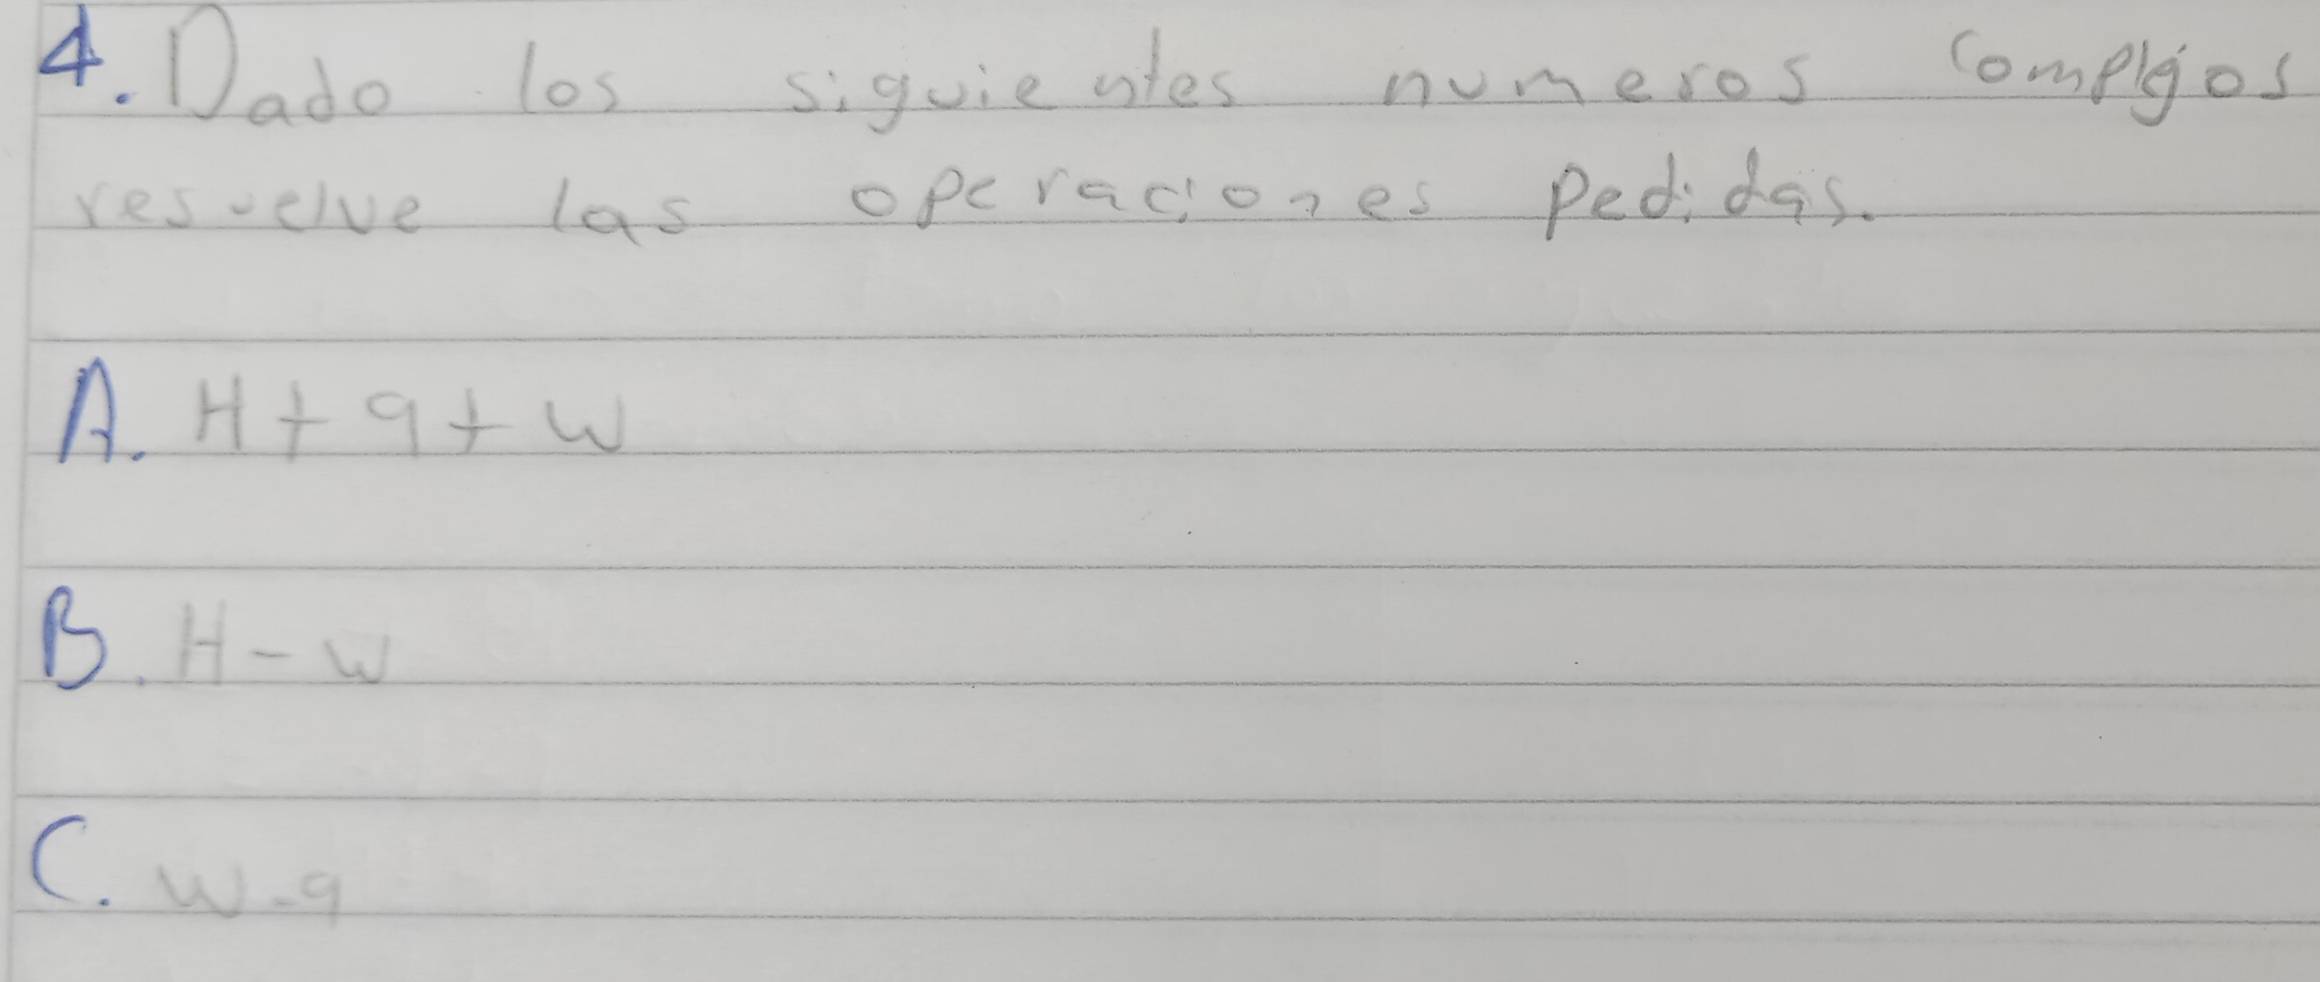 4. Dado los siguientes numeros complejos
resuelve las operaciones pedidas.
A. H + q + w
B. H - w
C. w - q